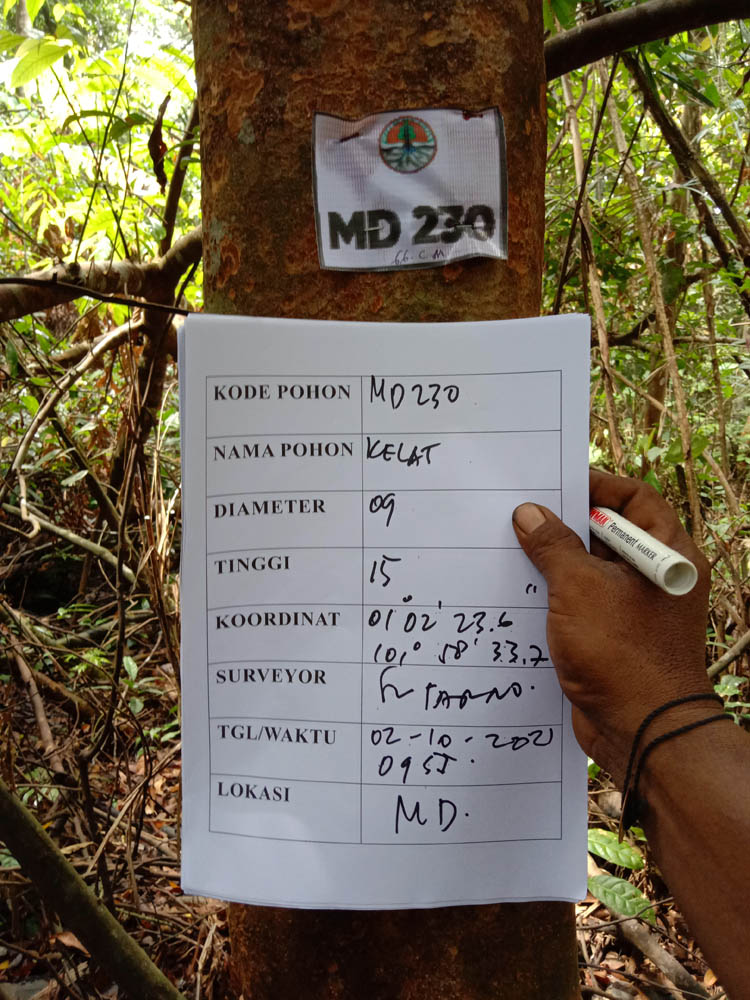 MD 230
66 CM
KODE POHON MD230
NAMA POHON KELAT
DIAMETER 09
TINGGI 15
KOORDINAT 01° 02' 23.6"
101° 58' 33.7
SURVEYOR
TGL/WAKTU 02-10-2021
LOKASI MD.
Permanent MARKER